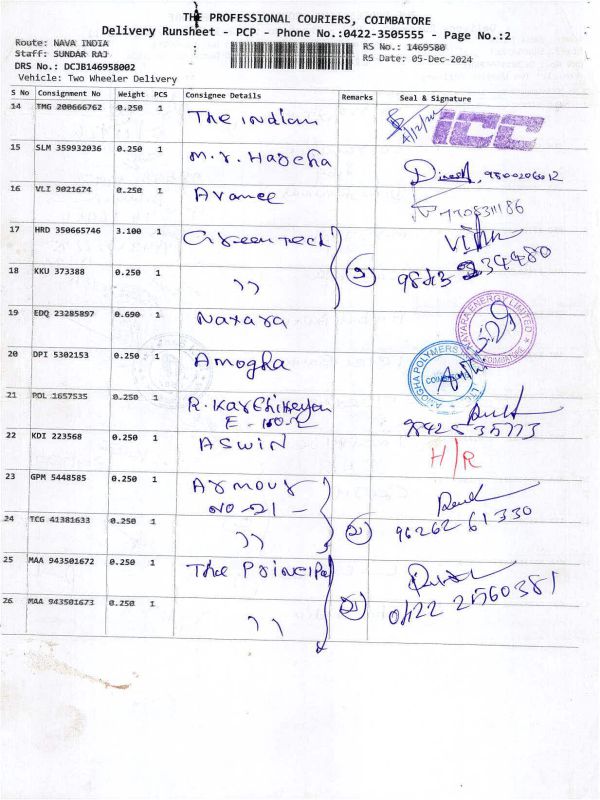 THE PROFESSIONAL COURIERS, COIMBATORE
Delivery Runsheet - PCP - Phone No.:0422-3505555 - Page No.:2
Route: NAVA INDIA
Staff: SUNDAR RAJ
DRS No.: DCJB146958002
Vehicle: Two Wheeler Delivery
RS No.: 1469580
RS Date: 05-Dec-2024
S No Consignment No Weight PCS Consignee Details Remarks Seal & Signature
14 TMG 200666762 0.250 1 The indian ICC
15 SLM 359932036 0.250 1 M.r. Harsha Dinesh 9800206012
16 VLI 9021674 0.250 1 Avanee
17 HRD 350665746 3.100 1 Greentech
18 KKU 373388 0.250 1 ,,
19 EDQ 23285897 0.690 1 Nayara NAYARA ENERGY LIMITED COIMBATORE
20 DPI 5302153 0.250 1 Amogha AMOGHA POLYMERS
21 POL 1657535 0.250 1 R. Karthikeyan
22 KDI 223568 0.250 1 ASWIN H/R
23 GPM 5448585 0.250 1 Armour
NO-21 -
24 TCG 41381633 0.250 1 ,, 96262 61330
25 MAA 943501672 0.250 1 The Principal
26 MAA 943501673 0.250 1 ,, 0422 2560381